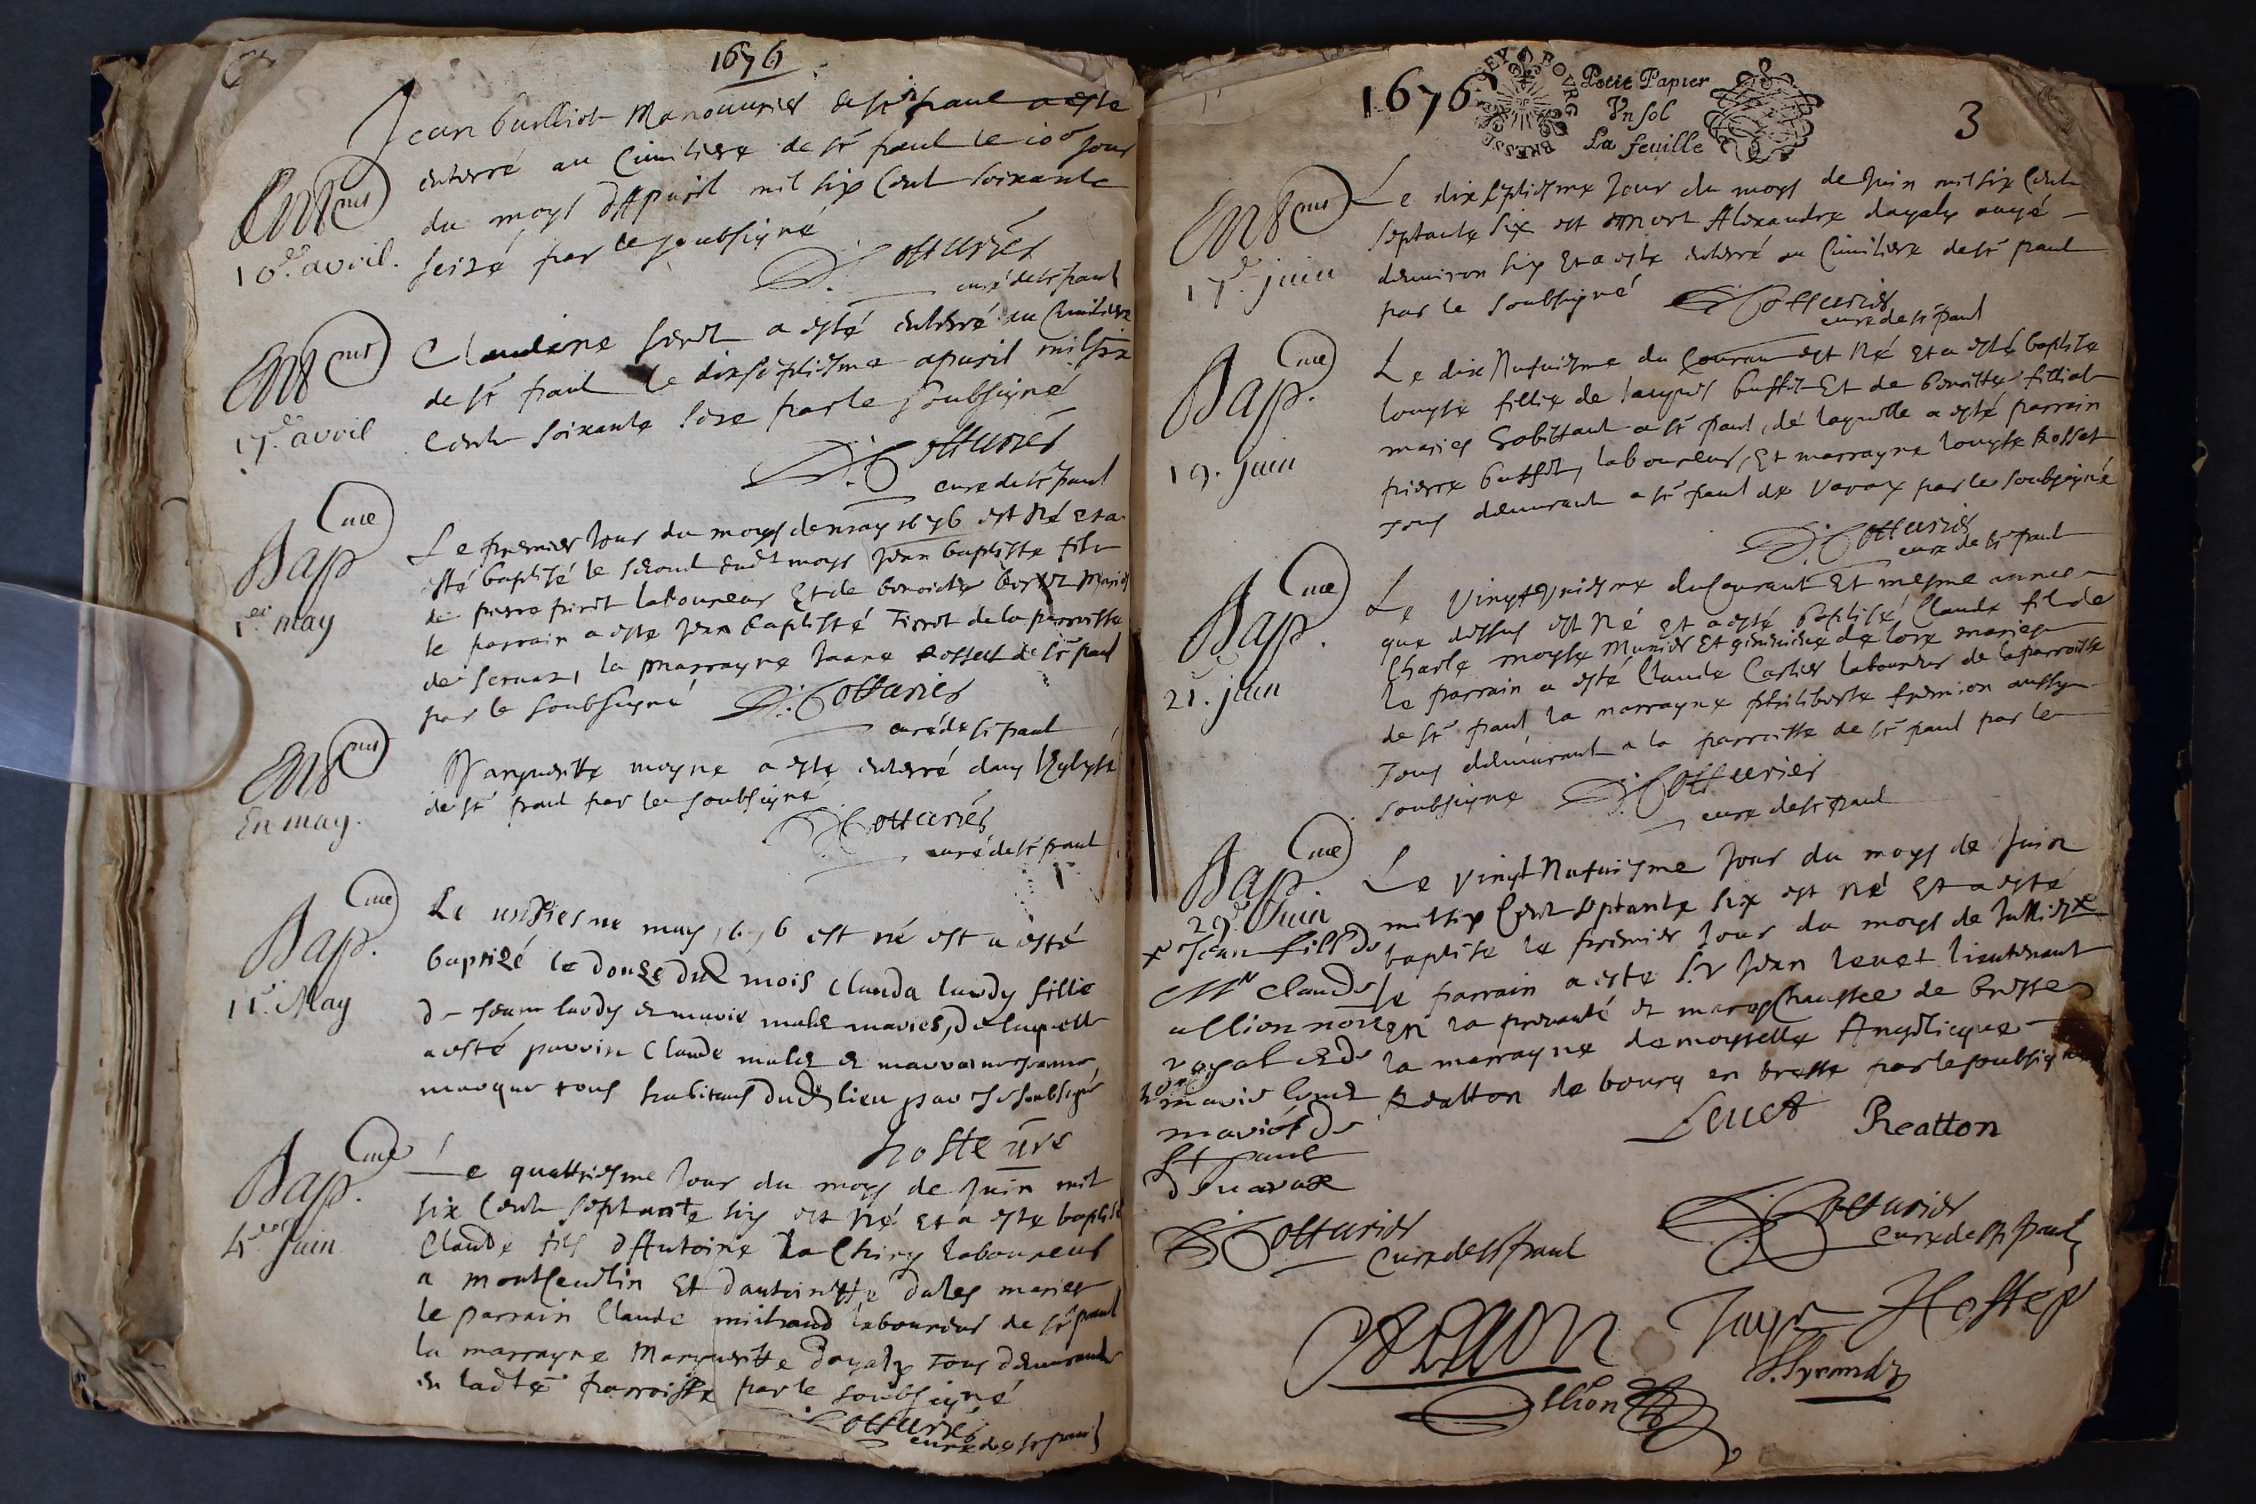 1676
Jean Guilliot Manouvrier de st paul a este
enterré au Cimitiere de st paul le 10e Jour
du moys d'Apuril mil six Cent soixante
seizé par le soubsigné
Cotturier
curé de st paul
Ent.ment
10e. avril.
Claudine a esté enterré au Cimitiere
de st paul le dixseptiesme apuril mil six
Cent soixante seze par le soubsigné
Cotturier
cure de st paul
Ent.ment
17e. avril
Le premier Jour du moys de may 1676 est Né et a
esté baptisé le second dudt moys Jean baptiste fils
de pierre laboureur Et de benoiste maries
le parrain a este Jean baptisté Tirrot de la parroisse
de Seruas, la marrayne Rosset de st paul
par le soubsigné
Cotturier
curé de st paul
Bap.me
1er may
Margueritte moyne a este enterré dans l'Eglise
de st paul par le soubsigné
Cotturier
curé de st paul
Ent.ment
En may.
Le unziesme may 1676 est né est a esté
baptizé le douze dud mois Clauda lardy fillie
de Jean lardy et marie malet maries, de laquelle
a esté parrin Claude malet et marraine Jeanne
marque tous habitans dud lieu par le soubsigné
hoste vre
Bap.me
11e. May
Le quattriesme Jour du moys de Juin mil
six Cent septante six est Né Et a este baptisé
Claude fils d'Antoine La Chiry laboureur
a Et d'antoinette dales maries
le parrain Claude mitrand laboureur de st paul
la marrayne Margueritte dayaly Tous demeurants
en ladte parroisse par le soubsigné
Cotturier
cure de st paul
Bap.me
4e Juin
1676
BRESSE BOVRG
Petit Papier
Vn sol
La feuille
3
Le dix septiesme Jour du moys de Juin mil six Cent
septante six est mort Alexandre dayaly aagé
d'enuiron six Et a este enterré au Cimitiere de st paul
par le soubsigné
Cotturier
cure de st paul
Ent.ment
17e. juin
Le dix Neufuiesme du Courant est Né Et a esté baptise
louyse fillie de Jaques buffet Et de benoitte filliat
maries habittant a st paul, de laquelle a esté parrain
pierre buffet, laboureur, Et marrayne louyse Rosset
Tous demeurant a st paul de Varax par le soubsigné
Cotturier
cure de st paul
Bap.me
19. juin
Le Vingt Vniesme du Courant Et mesme annee
que dessus est Né et a esté baptisé Claude fils de
Charle moyse Munier Et geneuieue de lore maries
le parrain a esté Claude Carlier laboureur de la parroisse
de st paul la marrayne philiberte fremion aussy
Tous demeurant a la parroisse de st paul par le
soubsigne
Cotturier
cure de st paul
Bap.me
21. juin
Le vingt Neufuiesme Jour du moys de Juin
mil six Cent septante six est Né Et a esté
baptise le premier Jour du moys de Julliet
le parrain a este Sr Jean leuet lieutenant
en la preuauté et mareschaussée de bresse
la marrayne demoyselle Angelique
Reatton de bourg en bresse par le soubsigné
Bap.me
29e. Juin
x Jean fils de
Mr Claude
allion noter
royal et de
marie
mariés de
St paul
de uarax
Leuet
Reatton
Cotturier
cure de st paul
Cotturier
cure de st paul
Hoste
Allion